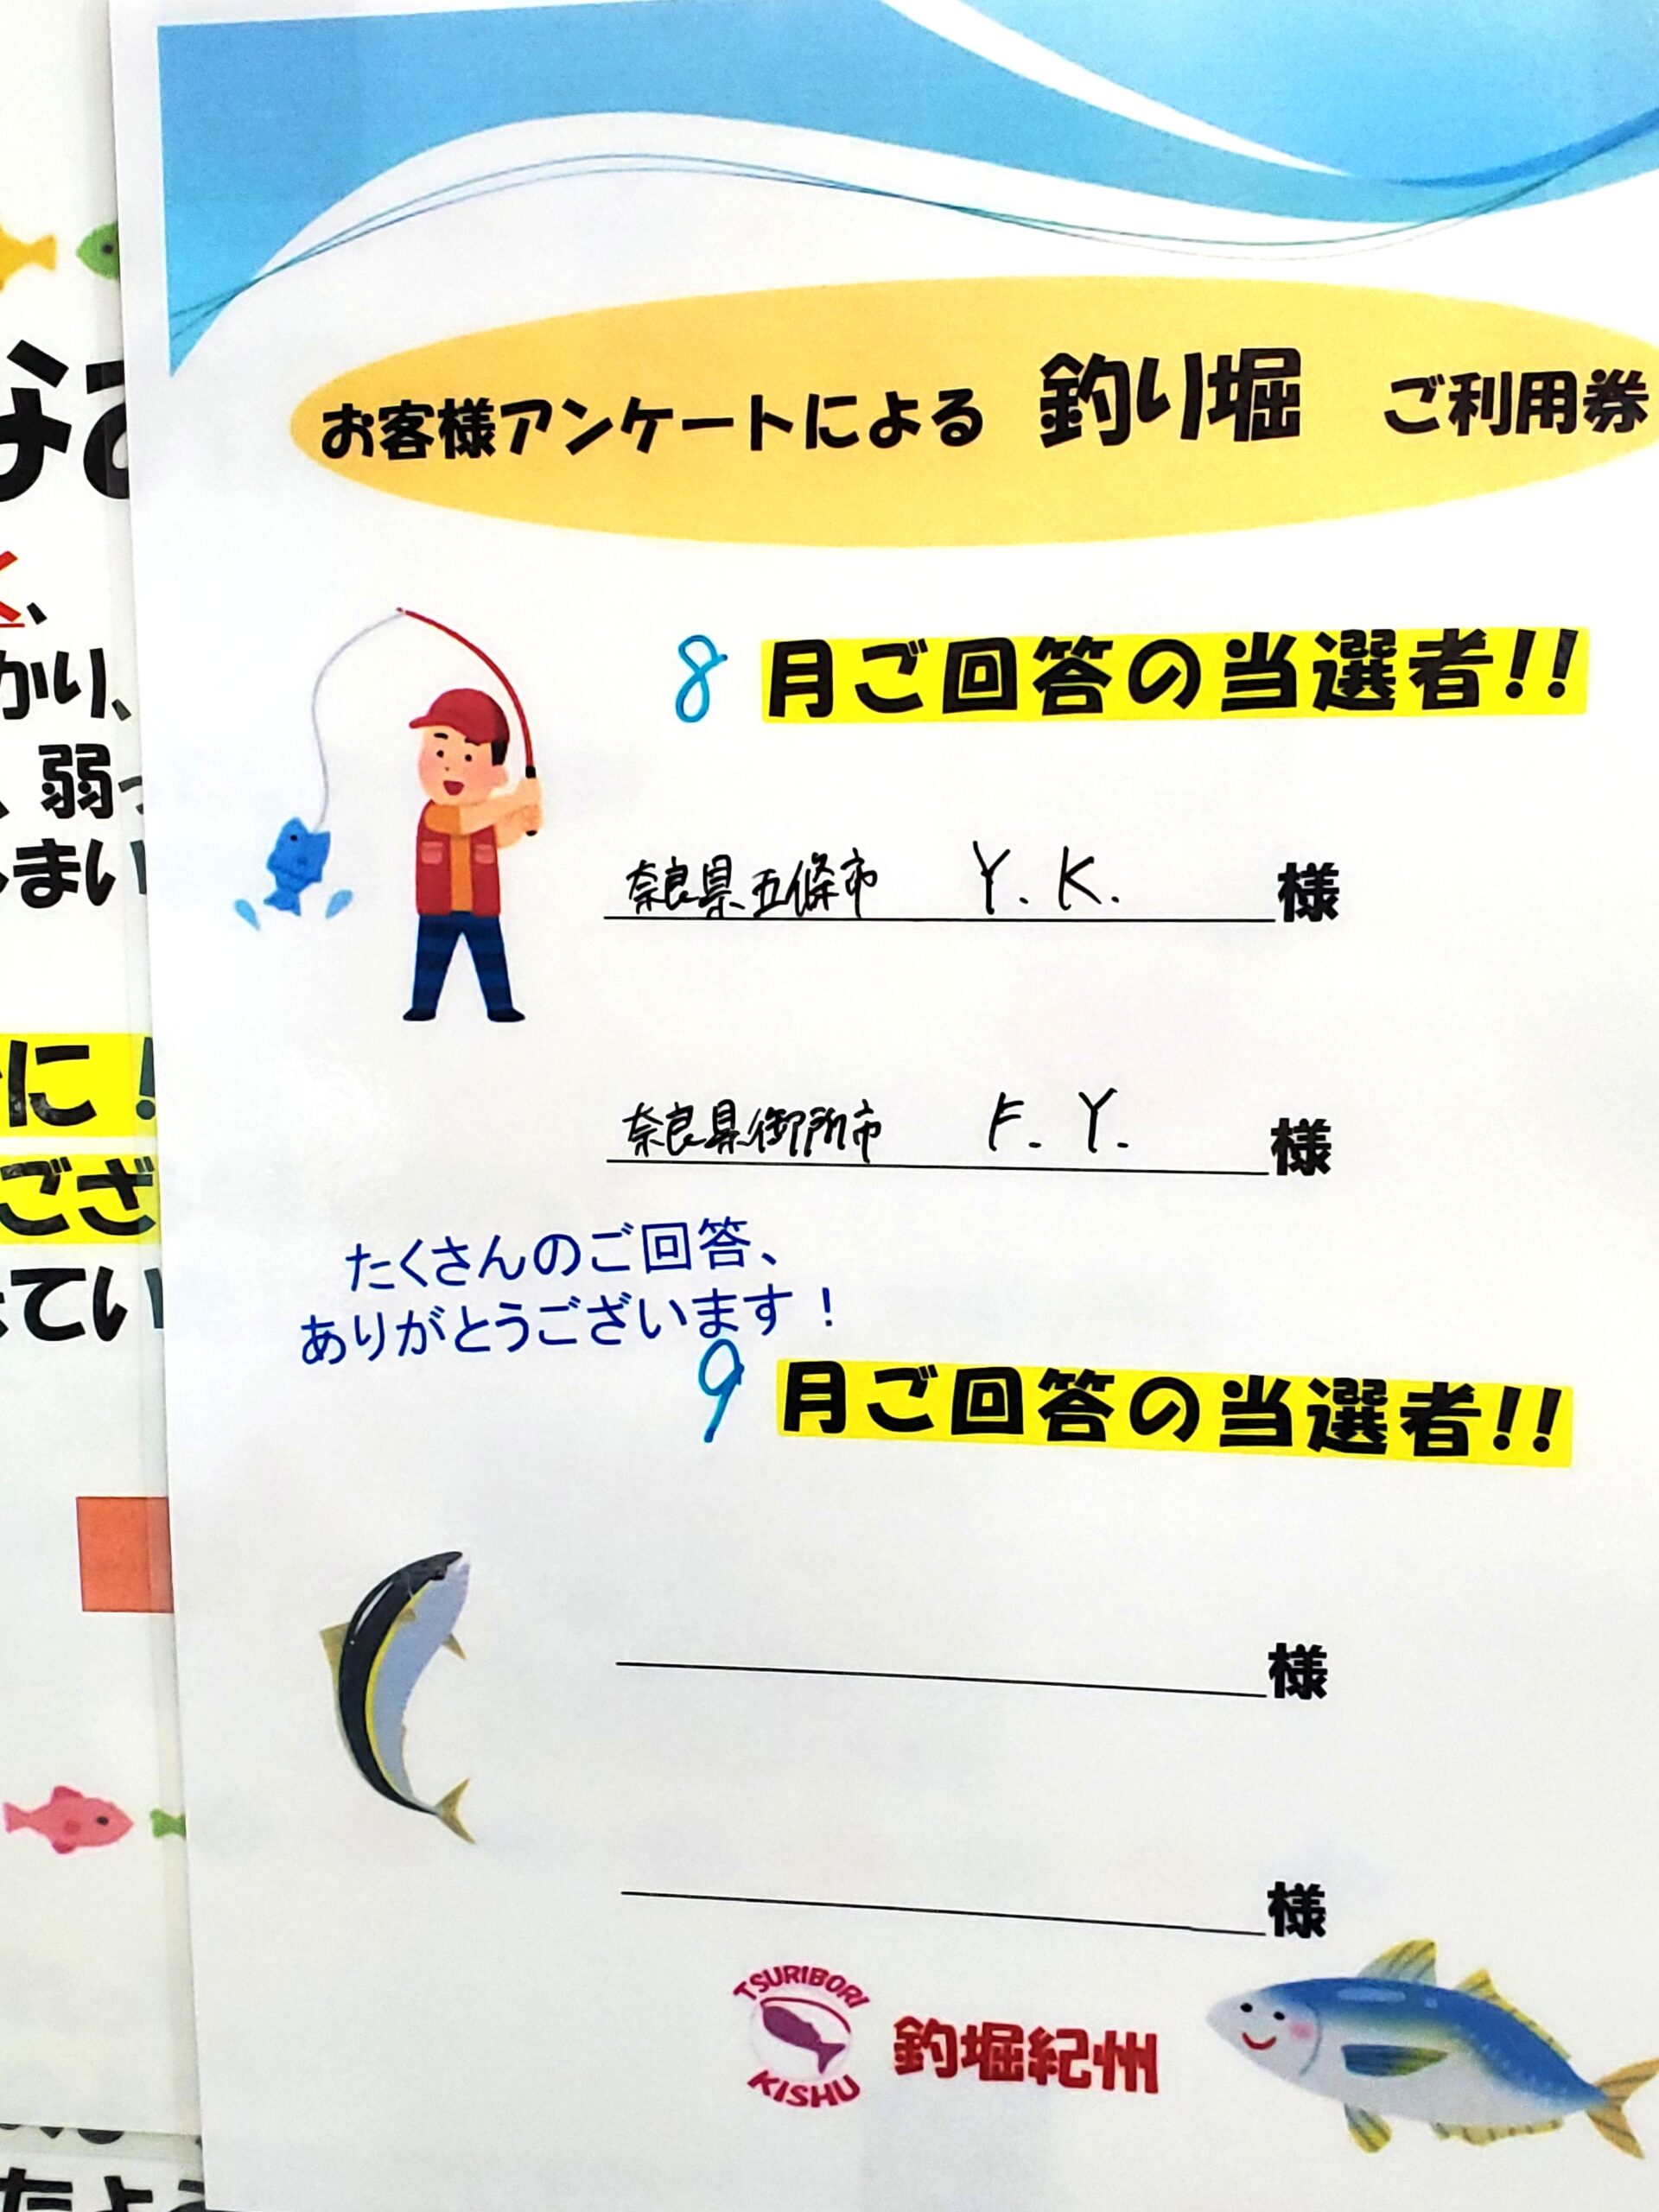 お客様アンケートによる 釣り堀 ご利用券
8月ご回答の当選者!!
奈良県五條市 Y.K. 様
奈良県御所市 F.Y. 様
たくさんのご回答、
ありがとうございます！
9月ご回答の当選者!!
様
様
TSURIBORI
KISHU
釣堀紀州
かり、
、弱っ
まい
に！
ござ
てい